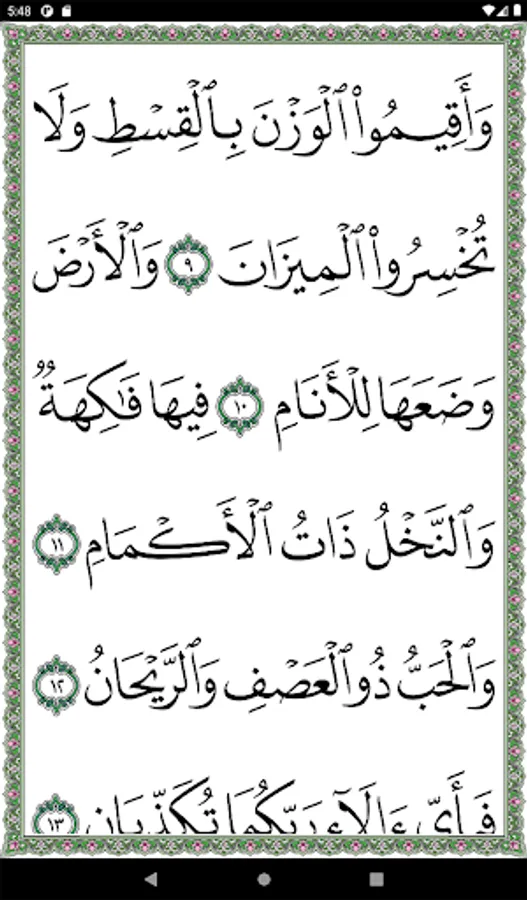 5:48
وَأَقِيمُوا۟ ٱلْوَزْنَ بِٱلْقِسْطِ وَلَا
تُخْسِرُوا۟ ٱلْمِيزَانَ ٩ وَٱلْأَرْضَ
وَضَعَهَا لِلْأَنَامِ ١٠ فِيهَا فَٰكِهَةٌ
وَٱلنَّخْلُ ذَاتُ ٱلْأَكْمَامِ ١١
وَٱلْحَبُّ ذُو ٱلْعَصْفِ وَٱلرَّيْحَانُ ١٢
فَبِأَىِّ ءَالَآءِ رَبِّكُمَا تُكَذِّبَانِ ١٣